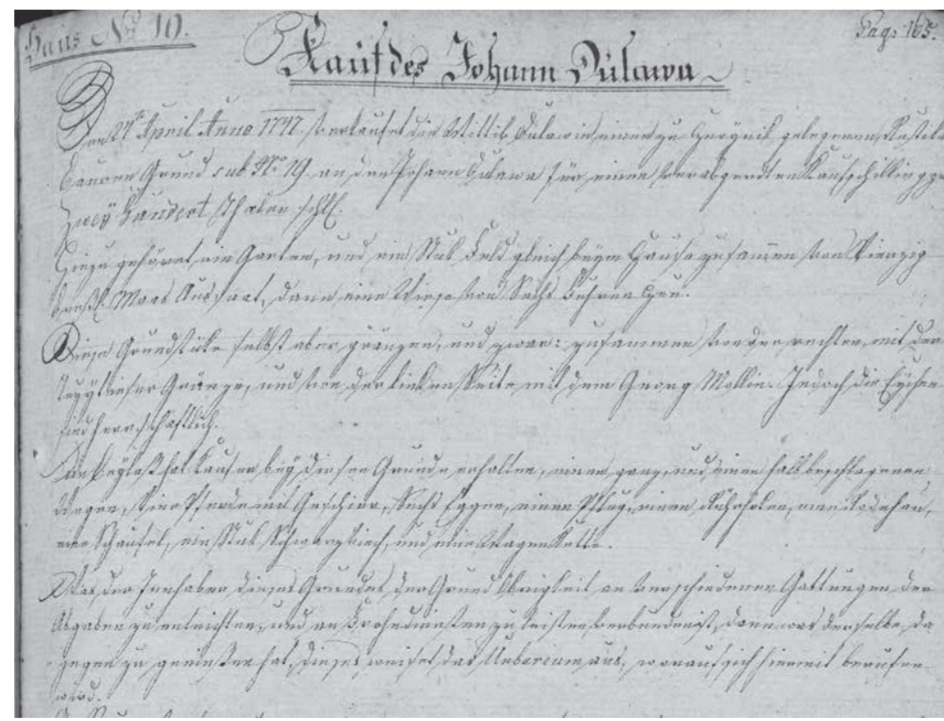 Haus No 19.
Pag: 165.
Kauf des Johann Dülawa
Den 24ten April Anno 1747. verkaufet die Wittib Dülawin einen zu gelegenen
Bauern Grund sub No 19. an den Johann Dülawa für einen verabgeredten Kaufschilling per
Zweÿ Hundert Thaler schl.
Hiezu gehöret ein Garten, und ein Stük Feld gleich beÿm Hause zusammen von Vierzig
Maas Aussaat, dann eine Wiese von Sechs Fuhren Heu.
Diese Grundstüke selbst aber gränzen, und zwar: zusammen von der rechten, mit der
Gränze, und von der linken Seite mit dem Georg Mollin. Jedoch die Eÿchen
sind herrschaftlich.
An Beÿlaß hat Kaufer beÿ diesem Grunde erhalten, einen ganz, und einen halb beschlagenen
Wagen, Vier Pferde mit Geschirr, Sechs Eggen, einen Pflug, einen eine Radehau,
eine Schaufel, ein Stük Schwarzviech, und eine Wagen Kette.
Was der Innhaber dieses Grundes der Grund Obrigkeit an verschiedenen Gattungen der
Abgaben zu entrichten, und an Frohndiensten zu leisten verbunden ist, dann was derselbe da
gegen zu genießen hat, dieses weiset das Urbarium aus, worauf sich hiemit berufen
wird.